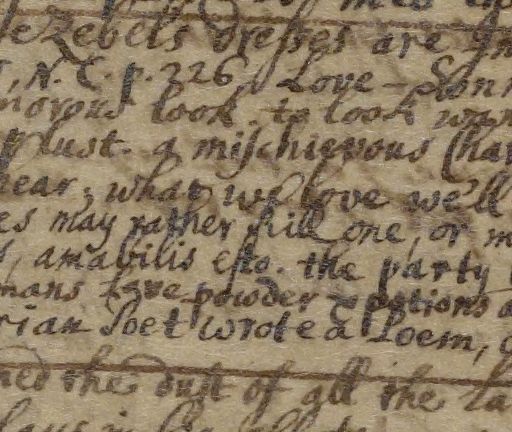 ezebels dresses are
N. C. p. 226. Love-
morous look. to look wan
lust. a mischievous Char
hear; what we love we'll
es may rather kill one, or m
amabilis esto. the party
mans powder potions
rian Poet wrote a Poem,
ned the dust of all the la